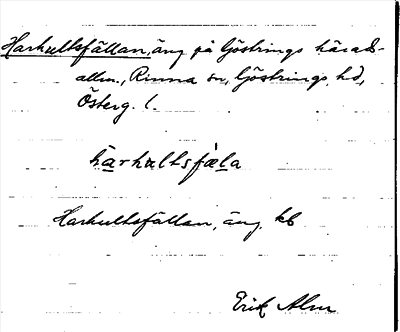 Harhultsfällan, äng på Göstrings härads-
allm., Rinna sn, Göstrings hd,
Österg. l.
harhultsfäla
Harhultsfällan, äng, kb
Erik Alm